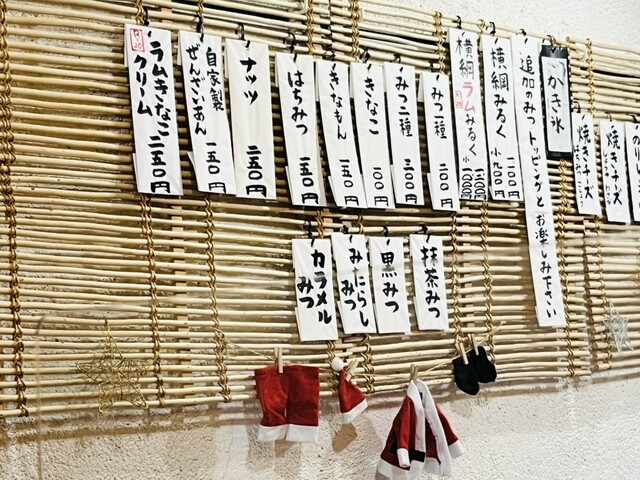 かき氷
追加のみつトッピングとお楽しみ下さい
横綱みるく
一二〇〇
小九〇〇円
横綱ラムみるく
小一〇〇〇円
みつ一種 二〇〇円
みつ二種 三〇〇円
きなこ 一〇〇円
きなもん 一五〇円
はちみつ 一五〇円
ナッツ 二五〇円
自家製
ぜんざいあん 一五〇円
ラムきなこ
クリーム 二五〇円
抹茶みつ
黒みつ
みたらし
みつ
カラメル
みつ
焼きチーズ
焼きチーズ
のりし